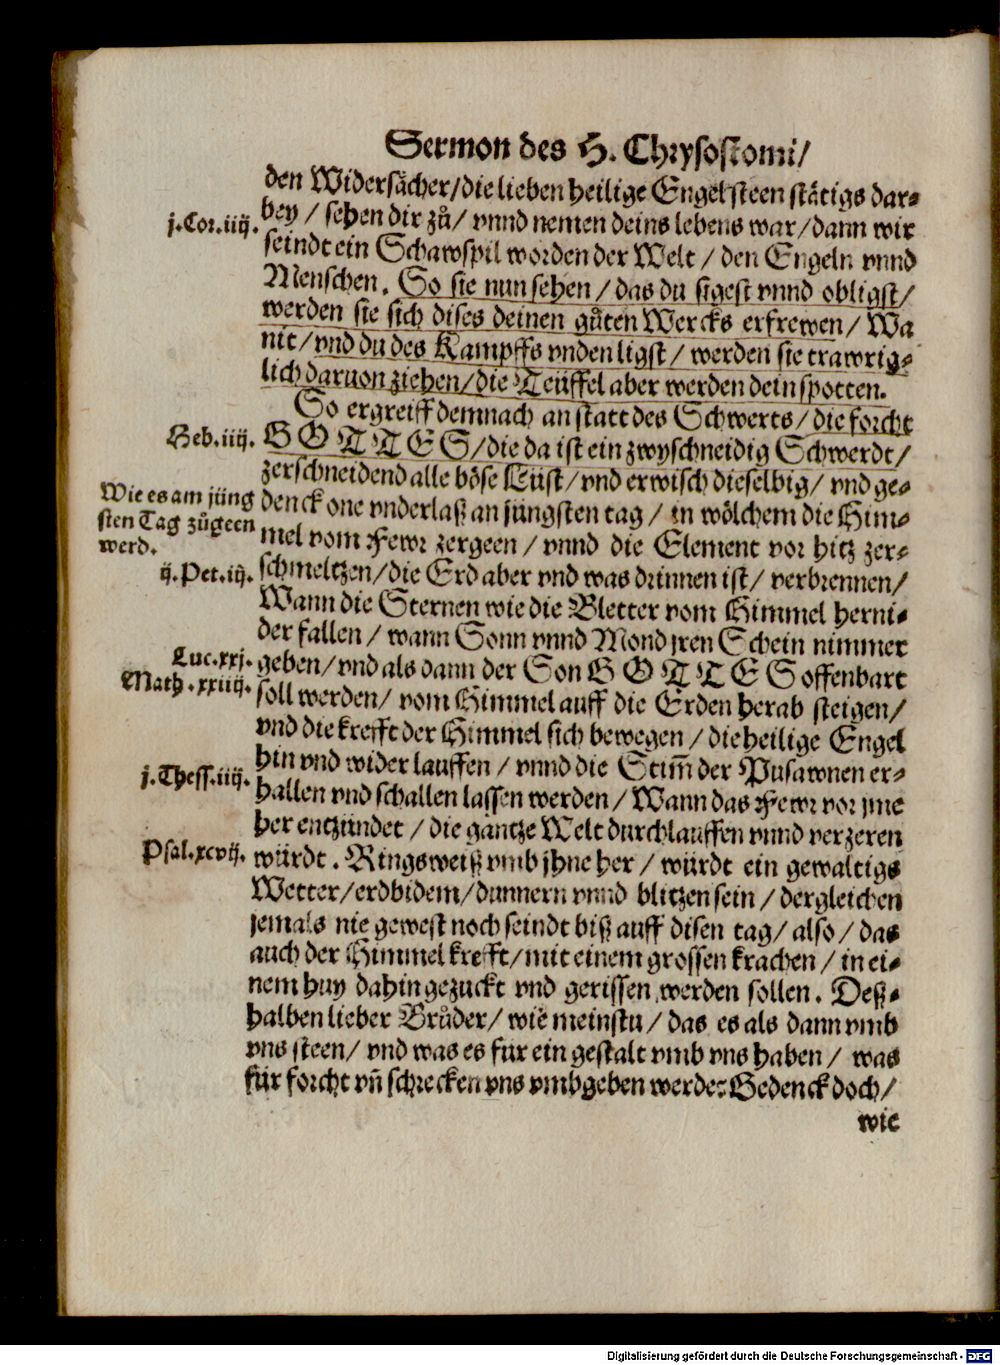 Sermon des H. Chrysostomi/
den Widersächer/die lieben heilige Engel steen stätigs dar-
j.Cor.iiij.
bey / sehen dir zů/ vnnd nemen deins lebens war/dann wir
seindt ein Schawspil worden der Welt / den Engeln vnnd
Menschen. So sie nun sehen / das du sigest vnnd obligst/
werden sie sich dises deinen gůten Wercks erfrewen/ Wa
nit/ vnd du des Kampffs vnden ligst / werden sie trawrig-
lich daruon ziehen/die Teüffel aber werden dein spotten.
So ergreiff demnach an statt des Schwerts/ die forcht
Heb.iiij.
GOTTES/die da ist ein zwyschneidig Schwerdt/
zerschneidend alle böse Lüst/ vnd erwisch dieselbig/ vnd ge-
Wie es am jüng
sten Tag zůgeen
werd.
denck one vnderlaß an jüngsten tag / in wölchem die Him-
mel vom Fewr zergeen / vnnd die Element vor hitz zer-
ij.Pet.iij.
schmeltzen/die Erd aber vnd was drinnen ist/ verbrennen/
Wann die Sternen wie die Bletter vom Himmel herni-
der fallen / wann Sonn vnnd Mond jren Schein nimmer
Luc.xxj.
geben/vnd als dann der Son GOTTES offenbart
Math.xxiiij.
soll werden/ vom Himmel auff die Erden herab steigen/
vnd die krefft der Himmel sich bewegen / die heilige Engel
hin vnd wider lauffen / vnnd die Stim̃ der Pusawnen er-
j.Thess.iiij.
hallen vnd schallen lassen werden / Wann das Fewr vor jme
her entzündet / die gantze Welt durchlauffen vnnd verzeren
Psal.xcvij.
würdt. Ringsweiß vmb jhne her / würdt ein gewaltigs
Wetter/erdbidem/dunnern vnnd blitzen sein / dergleichen
jemals nie gewest noch seindt biß auff disen tag/ also / das
auch der Himmel krefft/mit einem grossen krachen / in ei-
nem huy dahin gezuckt vnd gerissen werden sollen. Deß-
halben lieber Brůder/ wie meinstu / das es als dann vmb
vns steen/ vnd was es für ein gestalt vmb vns haben / was
für forcht vn̄ schrecken vns vmbgeben werde? Gedenck doch/
wie
Digitalisierung gefördert durch die Deutsche Forschungsgemeinschaft - DFG